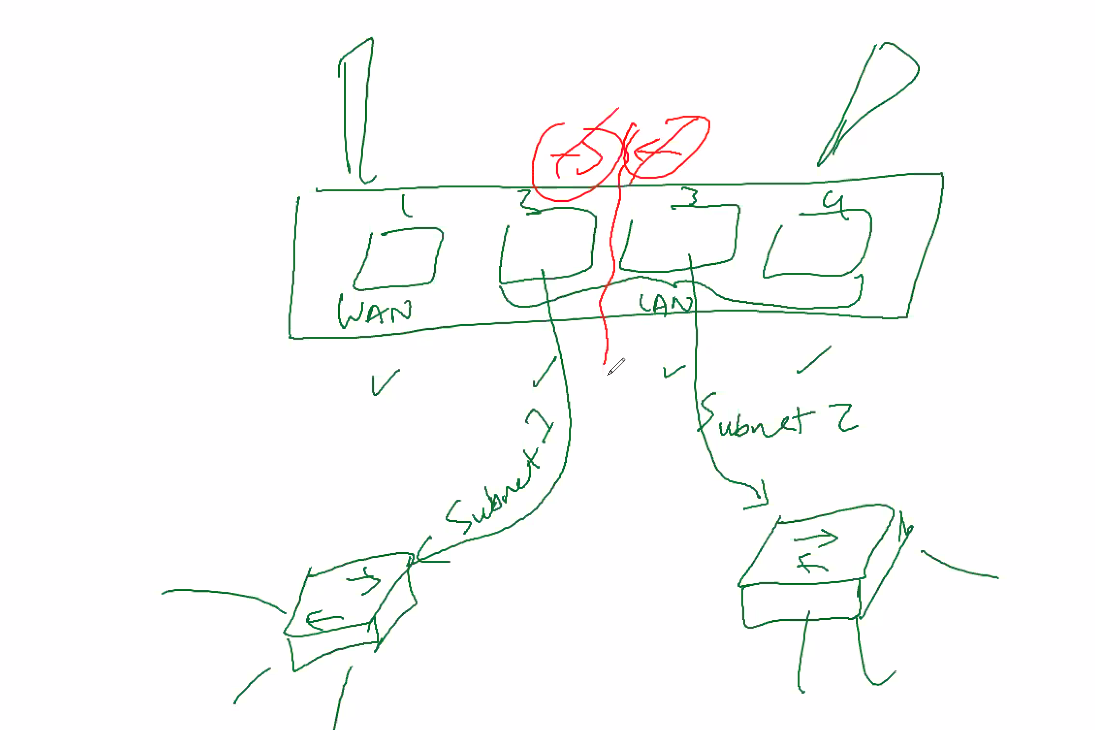 1 2 3 4
WAN LAN
Subnet 2
Subnet